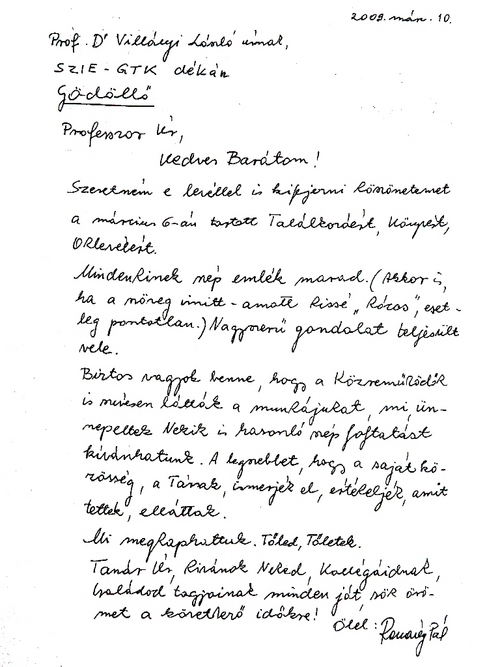 2009. már. 10.
Prof. Dr Villányi László úrnak,
SZIE - GTK dékán
Gödöllő
Professzor Úr,
Kedves Barátom!
Szeretném e levéllel is kifejezni köszönetemet
a március 6-án tartott Találkozóért, Könyvért,
Oklevelért.
Mindenkinek szép emlék marad. (Akkor is,
ha a szöveg imitt-amott kissé „Kócos", eset-
leg pontatlan.) Nagyszerű gondolat teljesült
vele.
Biztos vagyok benne, hogy a Közreműködők
is szívesen látták a munkájukat, mi, ün-
nepeltek Nekik is hasonló szép folytatást
kívánhatunk. A legszebbet, hogy a saját kö-
zösség, a Társak, ismerjék el, értékeljék, amit
tettek, elláttak.
Mi megkaphattuk. Tőled, Tőletek.
Tanár Úr, Kívánok Neked, Kollégáidnak,
Családod tagjainak minden jót, sok örö-
met a következő időkre!
Ölel: Pál